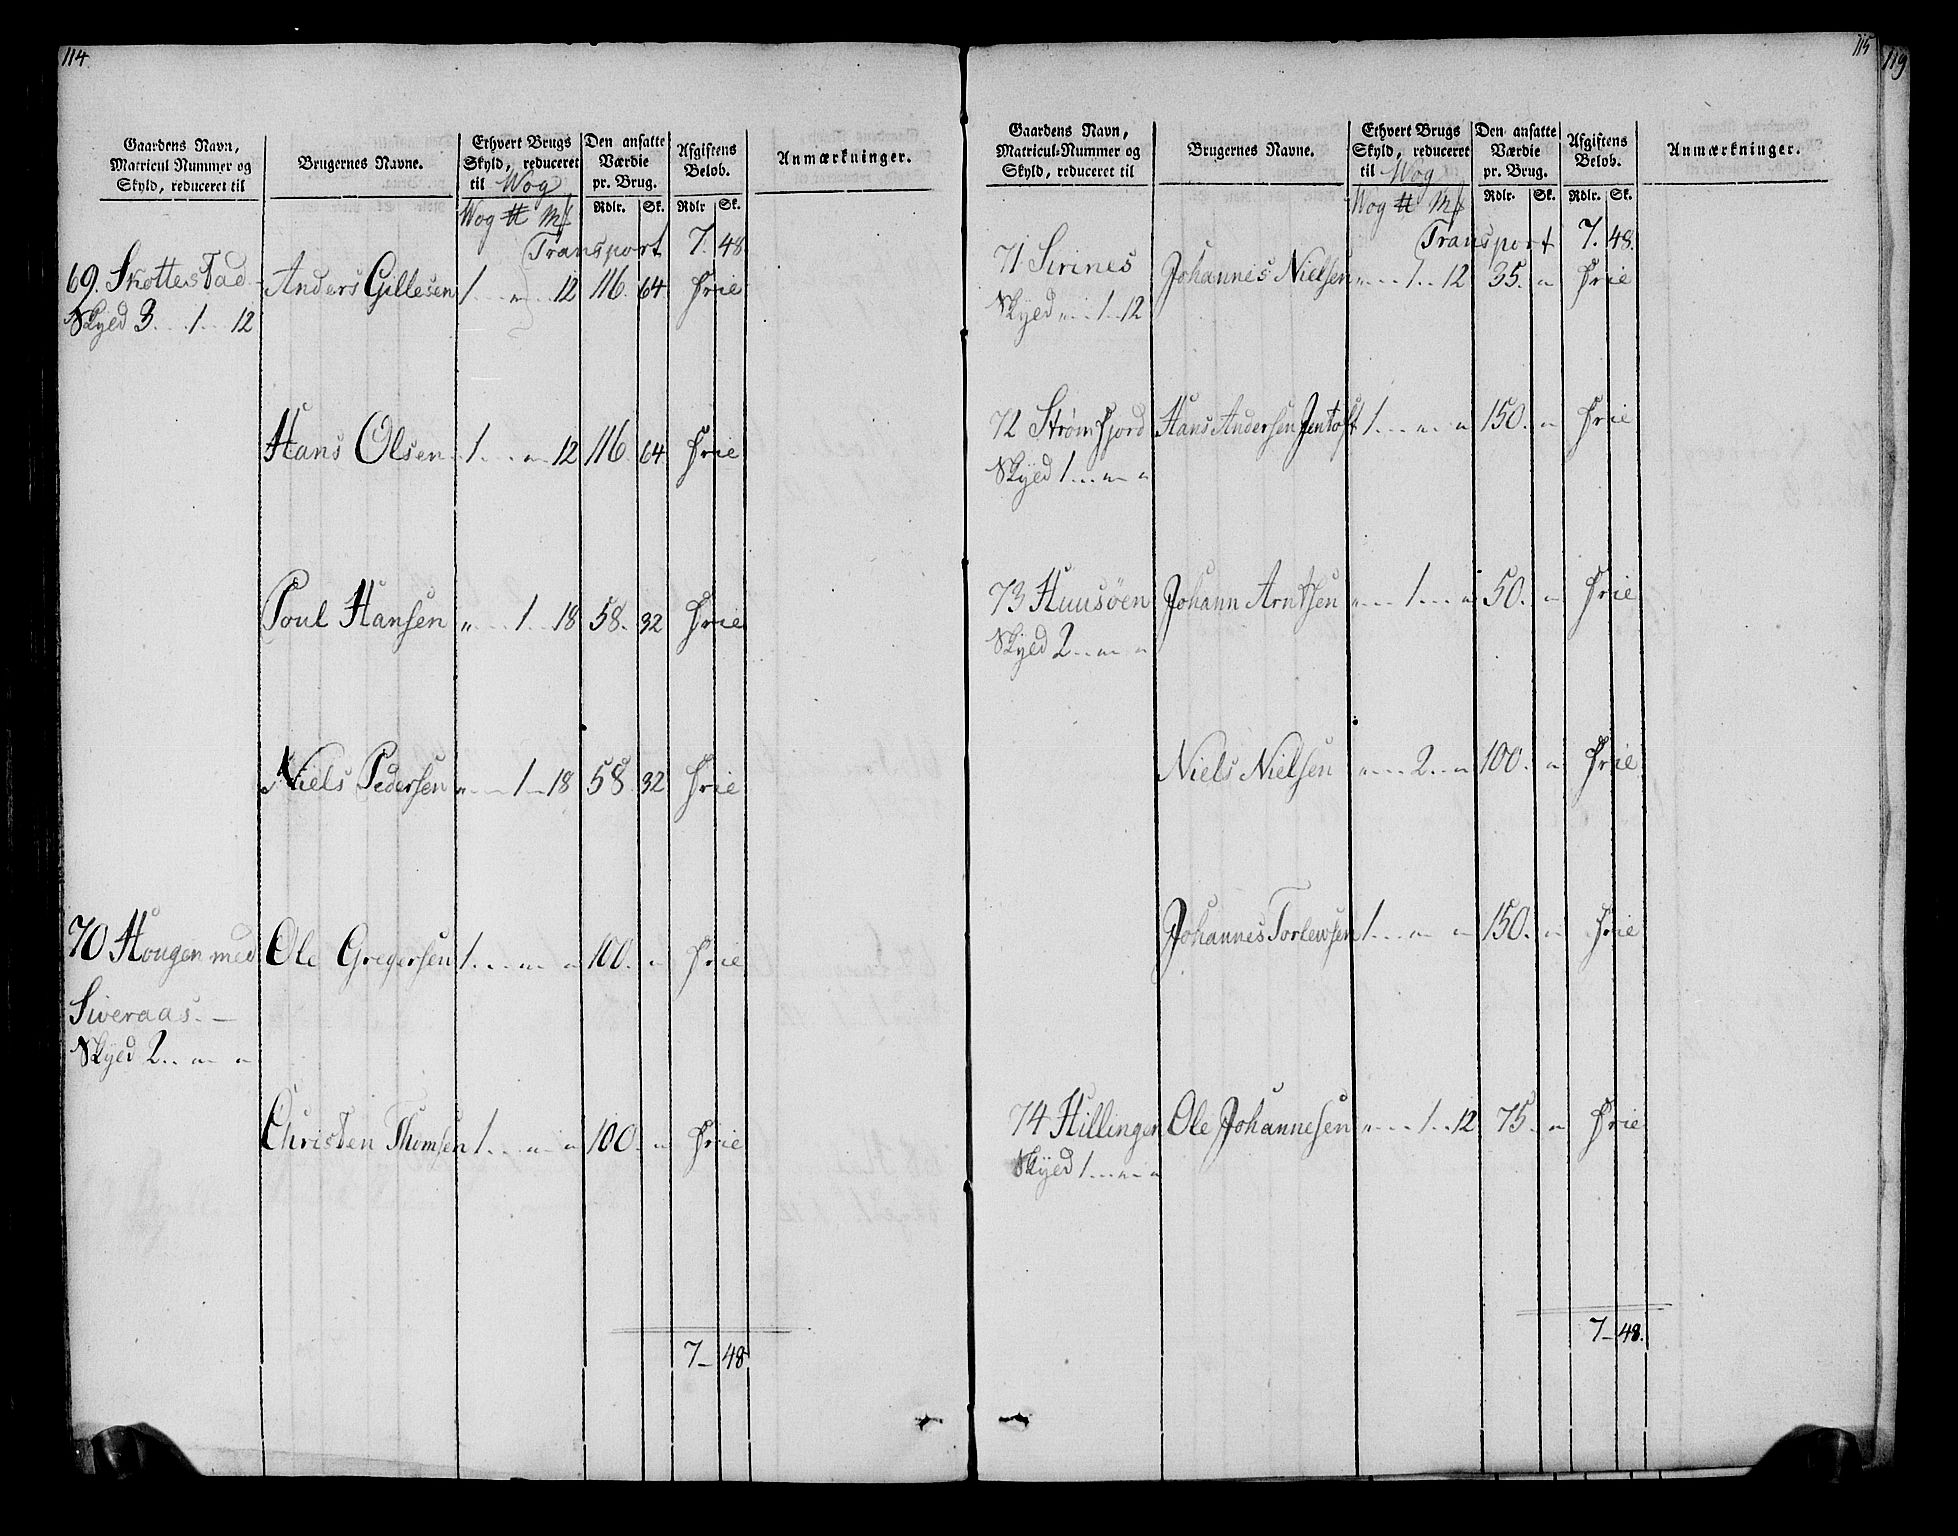 114
Gaardens Navn,
Matricul Nummer og
Skyld, reduceret til
Brugernes Navne.
Ethvert Brugs
Skyld, reduceret
til Wog
Den ansatte
Værdie
pr. Brug.
Afgiftens
Beløb.
Anmærkninger.
Wog ℔ Mk
Rdlr. Sk. Rdlr Sk.
Transport 7. 48
69. Skottestad Anders Gillesen 1 . . „ . . 12 116. 64 Frie
Skyld 3 . . . 1 . . 12
Hans Olsen 1 . . . „ . 12 116. 64 Frie
Poul Hansen „ . . . 1 . . 18 58. 32 Frie
Niels Pedersen „ . . . 1 . . 18 58. 32 Frie
70 Hougen med Ole Gregersen 1 . . . „ . . „ 100. „ Frie
Siveraas. —
Skyld 2 . . „ . . „
Christen Thomsen 1 . . . „ . . „ 100. „ Frie
7 — 48
115
119
Gaardens Navn,
Matricul-Nummer og
Skyld, reduceret til
Brugernes Navne.
Ethvert Brugs
Skyld, reduceret
til Wog
Den ansatte
Værdie
pr. Brug.
Afgiftens
Beløb.
Anmærkninger.
Wog ℔ Mk
Rdlr. Sk. Rdlr. Sk.
Transport 7. 48.
71 Sirines Johannes Nielsen „ . . . 1 . . 12 35. „ Frie
Skyld „ . . . 1 . . 12
72 Strømfjord Hans Andersen Jentoft 1 . . . „ . . „ 150. „ Frie
Skyld 1 . . . „ . . „
73 Huusøen Johann Arntsen „ . . . 1 . . . „ 50. „ Frie
Skyld 2 . . „ . . „
Niels Nielsen „ . . . 2 . . „ 100. „ Frie
Johannes Torlevsen 1 . . . „ . . „ 150. „ Frie
74 Hillingen Ole Johannesen „ . . . 1 . . 12 75. „ Frie
Skyld 1 . . . „ . . „
7 — 48.